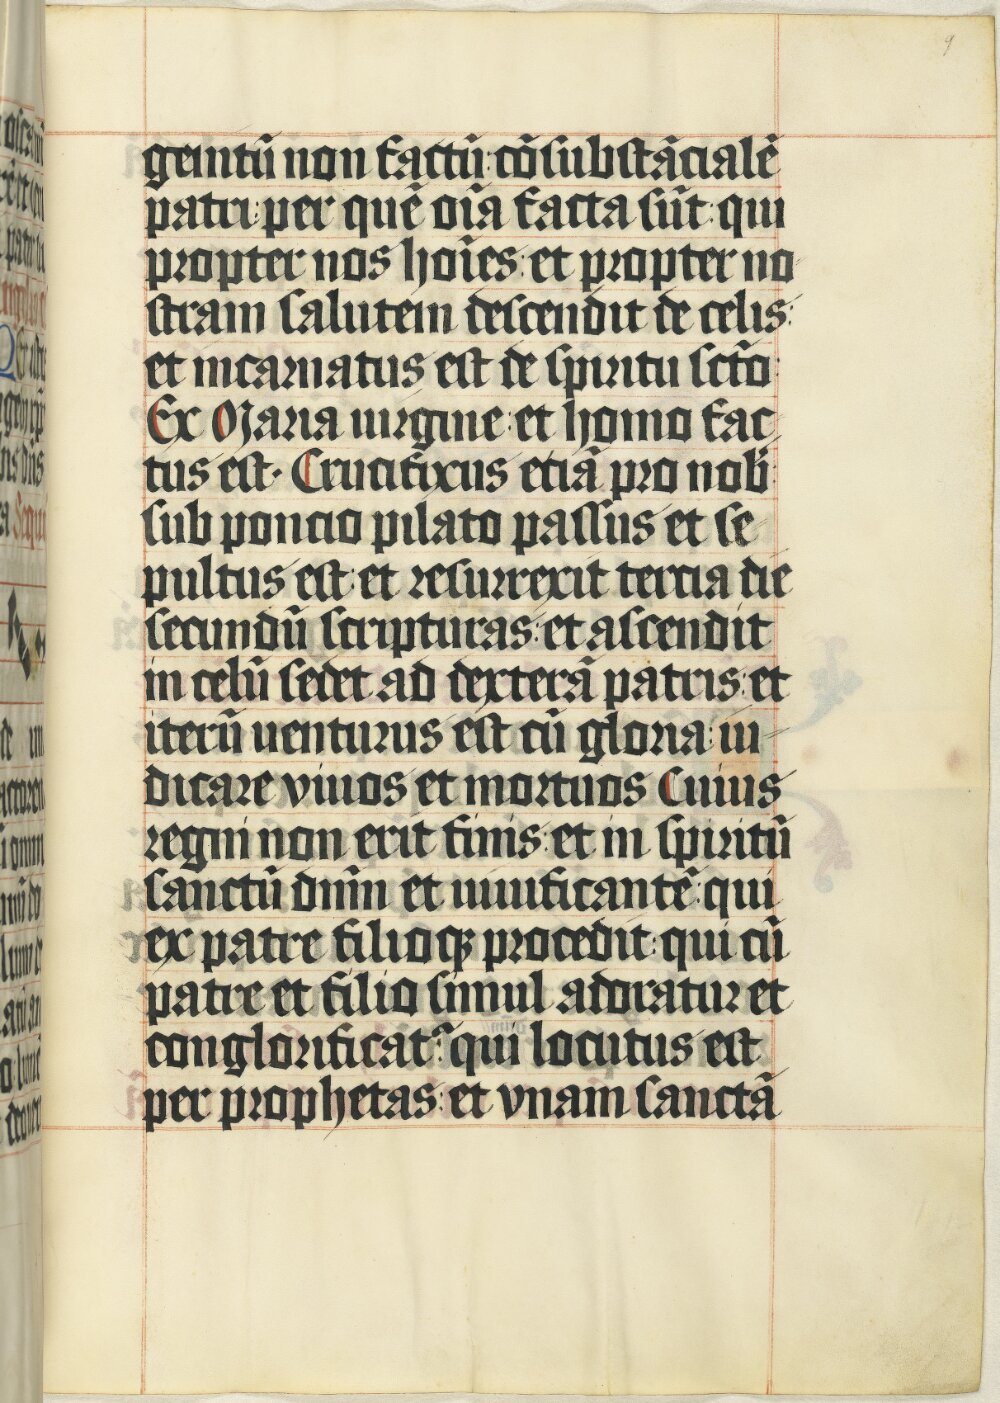 9
genitū non factū: cōsubstācialē
patri: per quē oīa facta sūt: qui
propter nos hoīes: et propter no
stram salutem descendit de celis:
et incarnatus est de spiritu scto:
Ex Maria uirgine: et homo fac
tus est. Crucifixus etiā pro nob
sub poncio pilato passus et se
pultus est: et resurrexit tercia die
secundū scripturas: et ascendit
in celū sedet ad dexterā patris: et
iterū uenturus est cū gloria: iu
dicare viuos et mortuos Cuius
regni non erit finis: et in spiritū
sanctū dnm̄ et uiuificantē: qui
ex patre filioqꝫ procedit: qui cū
patre et filio simul adoratur et
conglorificatᵃ: qui locutus est
per prophetas: et vnam sanctā